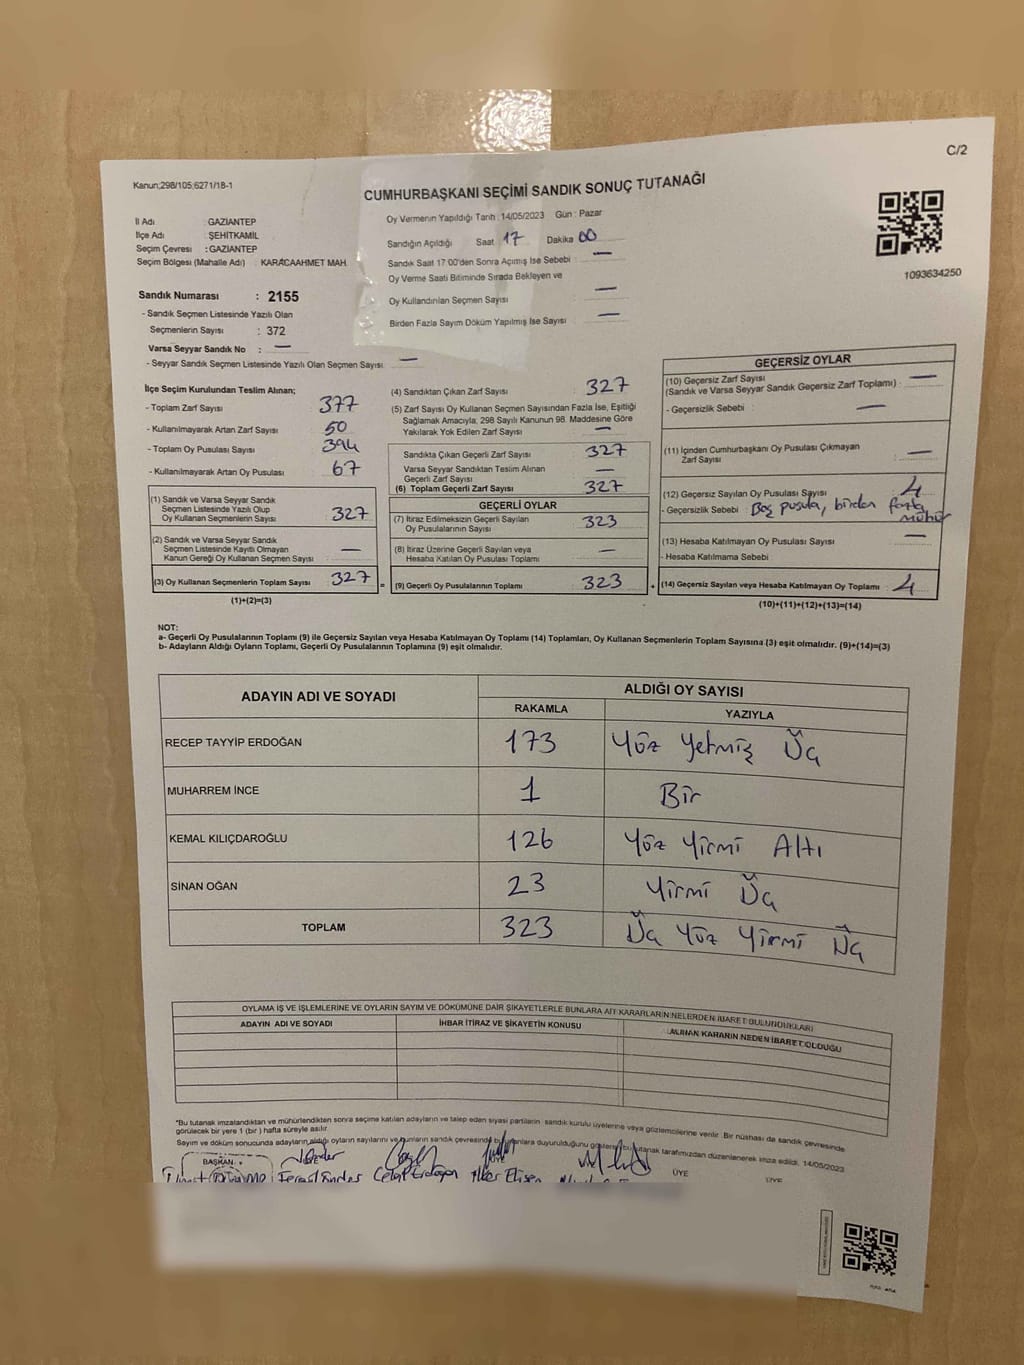 C/2
Kanun;298/105;6271/18-1
CUMHURBAŞKANI SEÇİMİ SANDIK SONUÇ TUTANAĞI
İl Adı : GAZİANTEP
İlçe Adı : ŞEHİTKAMİL
Seçim Çevresi : GAZİANTEP
Seçim Bölgesi (Mahalle Adı) : KARACAAHMET MAH.
Oy Vermenin Yapıldığı Tarih : 14/05/2023 Gün : Pazar
Sandığın Açıldığı Saat 17 Dakika 00
Sandık Saat 17:00'den Sonra Açımış İse Sebebi : —
Oy Verme Saati Bitiminde Sırada Bekleyen ve
Oy Kullandırılan Seçmen Sayısı : —
Birden Fazla Sayım Döküm Yapılmış İse Sayısı : —
1093634250
Sandık Numarası : 2155
- Sandık Seçmen Listesinde Yazılı Olan
Seçmenlerin Sayısı : 372
Varsa Seyyar Sandık No : —
- Seyyar Sandık Seçmen Listesinde Yazılı Olan Seçmen Sayısı : —
İlçe Seçim Kurulundan Teslim Alınan;
- Toplam Zarf Sayısı 377
- Kullanılmayarak Artan Zarf Sayısı 50
- Toplam Oy Pusulası Sayısı 394
- Kullanılmayarak Artan Oy Pusulası 67
(1) Sandık ve Varsa Seyyar Sandık
Seçmen Listesinde Yazılı Olup
Oy Kullanan Seçmenlerin Sayısı : 327
(2) Sandık ve Varsa Seyyar Sandık
Seçmen Listesinde Kayıtlı Olmayan
Kanun Gereği Oy Kullanan Seçmen Sayısı : —
(3) Oy Kullanan Seçmenlerin Toplam Sayısı : 327 =
(1)+(2)=(3)
(4) Sandıktan Çıkan Zarf Sayısı : 327
(5) Zarf Sayısı Oy Kullanan Seçmen Sayısından Fazla İse, Eşitliği
Sağlamak Amacıyla, 298 Sayılı Kanunun 98. Maddesine Göre
Yakılarak Yok Edilen Zarf Sayısı : —
Sandıkta Çıkan Geçerli Zarf Sayısı : 327
Varsa Seyyar Sandıktan Teslim Alınan
Geçerli Zarf Sayısı : —
(6) Toplam Geçerli Zarf Sayısı : 327
GEÇERLİ OYLAR
(7) İtiraz Edilmeksizin Geçerli Sayılan
Oy Pusulalarının Sayısı : 323
(8) İtiraz Üzerine Geçerli Sayılan veya
Hesaba Katılan Oy Pusulası Toplamı : —
(9) Geçerli Oy Pusulalarının Toplamı : 323 +
GEÇERSİZ OYLAR
(10) Geçersiz Zarf Sayısı
(Sandık ve Varsa Seyyar Sandık Geçersiz Zarf Toplamı) : —
- Geçersizlik Sebebi : —
(11) İçinden Cumhurbaşkanı Oy Pusulası Çıkmayan
Zarf Sayısı : —
(12) Geçersiz Sayılan Oy Pusulası Sayısı : 4
- Geçersizlik Sebebi : Boş pusula, birden fazla
mühür
(13) Hesaba Katılmayan Oy Pusulası Sayısı : —
- Hesaba Katılmama Sebebi :
(14) Geçersiz Sayılan veya Hesaba Katılmayan Oy Toplamı : 4
(10)+(11)+(12)+(13)=(14)
NOT:
a- Geçerli Oy Pusulalarının Toplamı (9) ile Geçersiz Sayılan veya Hesaba Katılmayan Oy Toplamı (14) Toplamları, Oy Kullanan Seçmenlerin Toplam Sayısına (3) eşit olmalıdır. (9)+(14)=(3)
b- Adayların Aldığı Oyların Toplamı, Geçerli Oy Pusulalarının Toplamına (9) eşit olmalıdır.
ADAYIN ADI VE SOYADI ALDIĞI OY SAYISI
RAKAMLA YAZIYLA
RECEP TAYYİP ERDOĞAN 173 Yüz Yetmiş Üç
MUHARREM İNCE 1 Bir
KEMAL KILIÇDAROĞLU 126 Yüz Yirmi Altı
SİNAN OĞAN 23 Yirmi Üç
TOPLAM 323 Üç Yüz Yirmi Üç
OYLAMA İŞ VE İŞLEMLERİNE VE OYLARIN SAYIM VE DÖKÜMÜNE DAİR ŞİKAYETLERLE BUNLARA AİT KARARLARIN NELERDEN İBARET BULUNDUKLARI
ADAYIN ADI VE SOYADI İHBAR İTİRAZ VE ŞİKAYETİN KONUSU ALINAN KARARIN NEDEN İBARET OLDUĞU
*Bu tutanak imzalandıktan ve mühürlendikten sonra seçime katılan adayların ve talep eden siyasi partilerin sandık kurulu üyelerine veya gözlemcilerine verilir. Bir nüshası da sandık çevresinde
görülecek bir yere 1 (bir) hafta süreyle asılır.
Sayım ve döküm sonucunda adayların aldığı oyların sayılarını ve bunların sandık çevresinde duyurulduğunu gösteren bu tutanak tarafımızdan düzenlenerek imza edildi. 14/05/2023
BAŞKAN ÜYE ÜYE